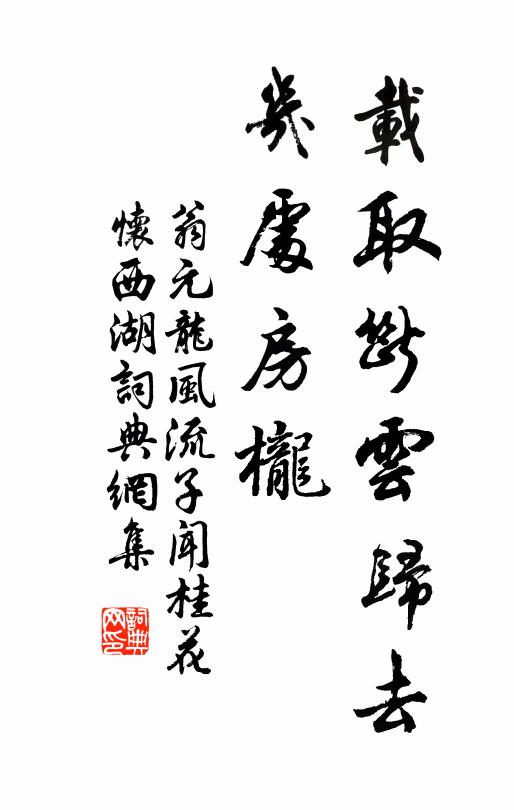 載取斷雲歸去
幾處房櫳
翁元龍風流子聞桂花
懷西湖詞典網集
詞典网印